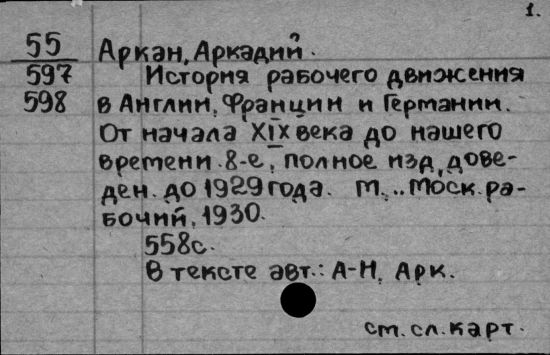 1.
55 Аркан, Аркадий.
597 История рабочего движения
598 в Англии, Франции и Германии.
От начала XIX века до нашего
времени. 8-е, полное изд, дове-
ден. до 1929 года. М., "Моск. ра-
бочий, 1930.
558с.
В тексте авт.: А-Н, Арк.
см. сл. карт.